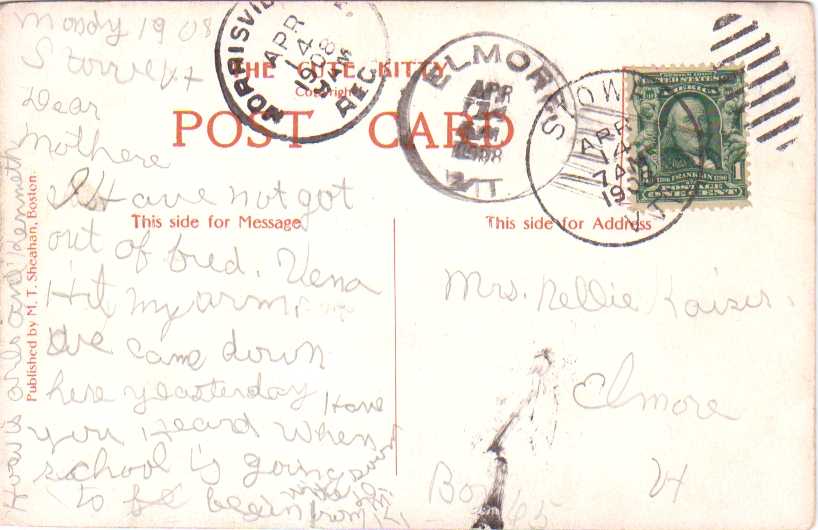 Mondy 1908
Stowe Vt
Dear
Mothere
I Have not got
out of bred. Vena
Hit my arm.
We came down
here yeasterday Have
you Heard when
school is going
to be begein
from
and Kenneth
Published by M. T. Sheahan, Boston.
THE CUTE KITTY
Copyright
POST CARD
This side for Message
This side for Address
MORRISVILLE,
APR
14
908
REC.
ELMORE
APR
14
AM
1908
VT.
STOWE
APR
14
7AM
1908
VT.
UNITED STATES OF AMERICA
1706 FRANKLIN 1790
POSTAGE
ONE CENT
1
Mrs. Nellie Kaiser.
Elmore
Vt
Box 65